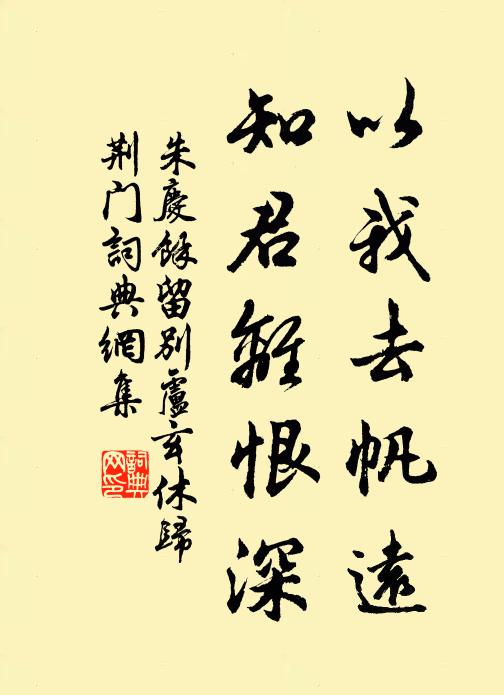 以我去帆遠
知君離恨深
朱慶餘留別盧玄休歸
荆门詞典網集
詞典网印